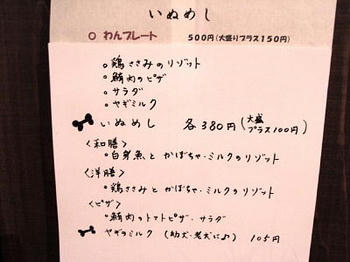 いぬめし
○ わんプレート 500円(大盛りプラス150円)
○鶏ささみのリゾット
○鮪肉のピザ
○サラダ
○ヤギミルク
いぬめし 各380円(大盛プラス100円)
<和膳>
○白身魚とかぼちゃ・ミルクのリゾット
<洋膳>
・鶏ささみとかぼちゃ・ミルクのリゾット
<ピザ>
・鮪肉のトマトピザ・サラダ
ヤギのミルク (幼犬・老犬に♪) 105円